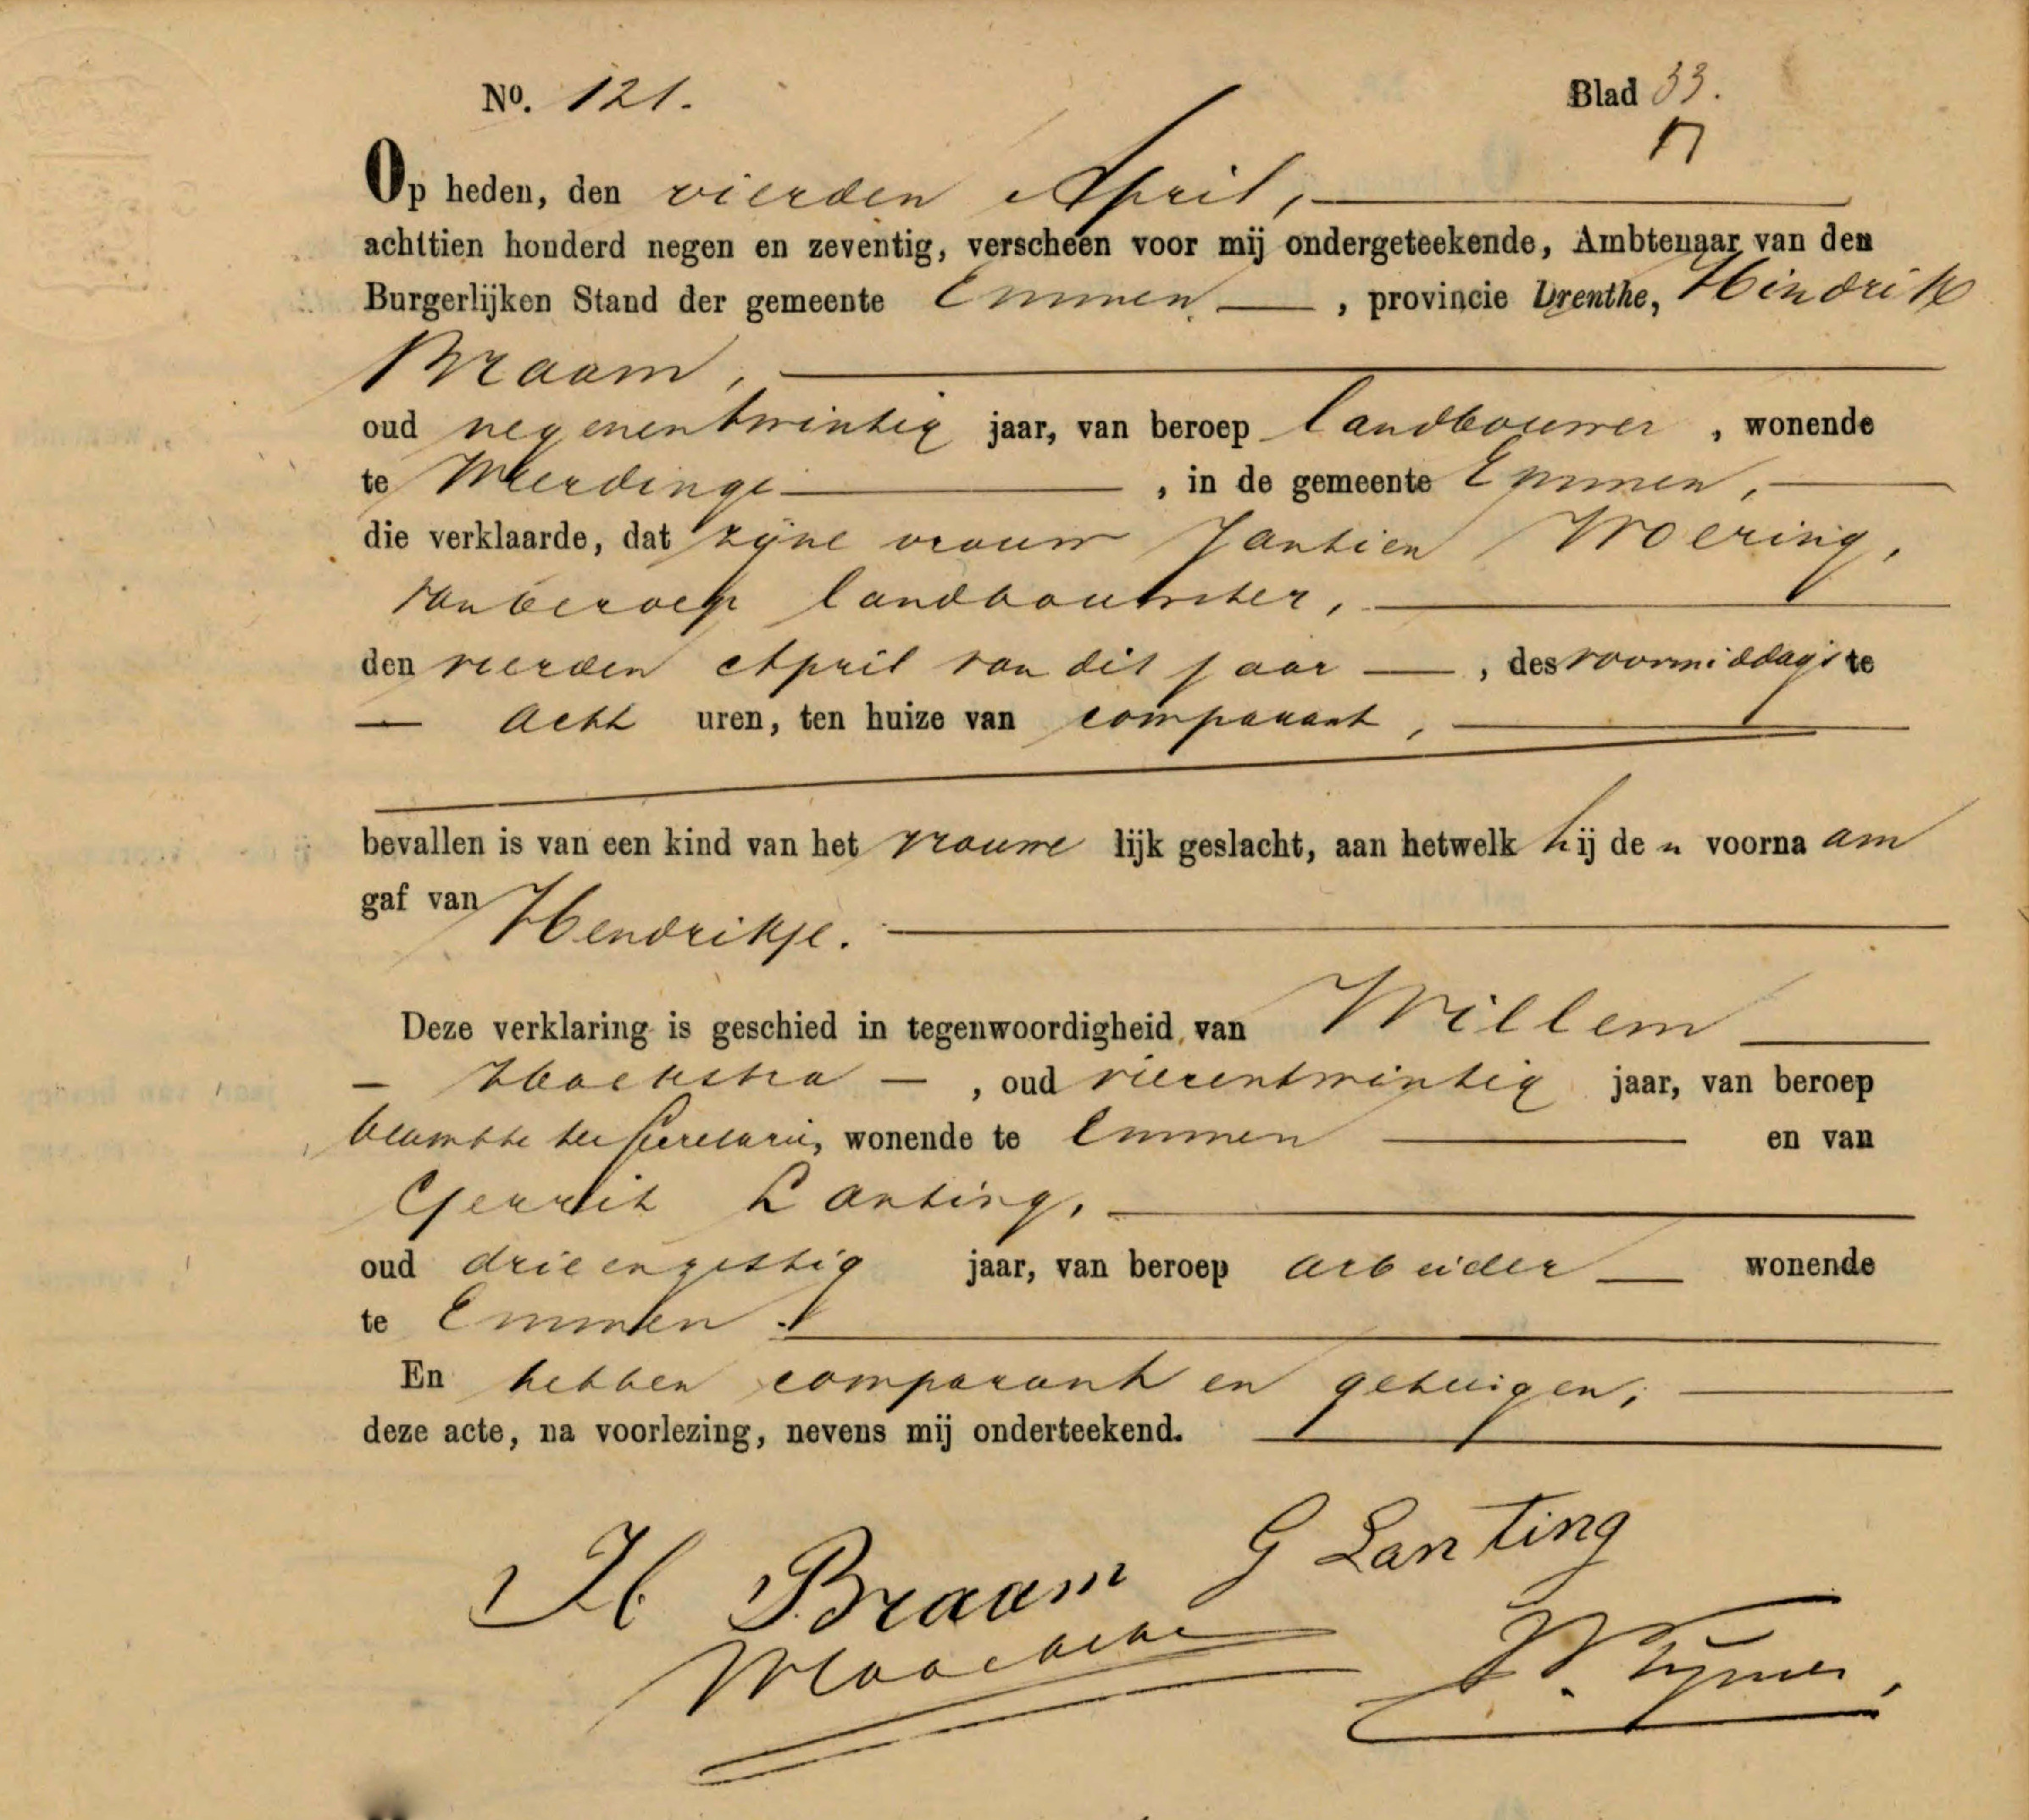 No. 121.
Blad 33.
Op heden, den vierden April,
achttien honderd negen en zeventig, verscheen voor mij ondergeteekende, Ambtenaar van den
Burgerlijken Stand der gemeente Emmen, provincie Drenthe, Hindrik
Braam,
oud negenentwintig jaar, van beroep landbouwer, wonende
te Weerdinge, in de gemeente Emmen,
die verklaarde, dat zijne vrouw Jantien Woering,
van beroep landbouwster,
den vierden April van dit jaar, des voormiddags te
acht uren, ten huize van comparant,
bevallen is van een kind van het vrouwelijk geslacht, aan hetwelk hij den voornaam
gaf van Hendrikje.
Deze verklaring is geschied in tegenwoordigheid van Willem
Hoekstra, oud vierentwintig jaar, van beroep
beambte ter secretarie, wonende te Emmen en van
Gerrit Lanting,
oud drieenzestig jaar, van beroep arbeider wonende
te Emmen.
En hebben comparant en getuigen,
deze acte, na voorlezing, nevens mij onderteekend.
H Braam G Lanting